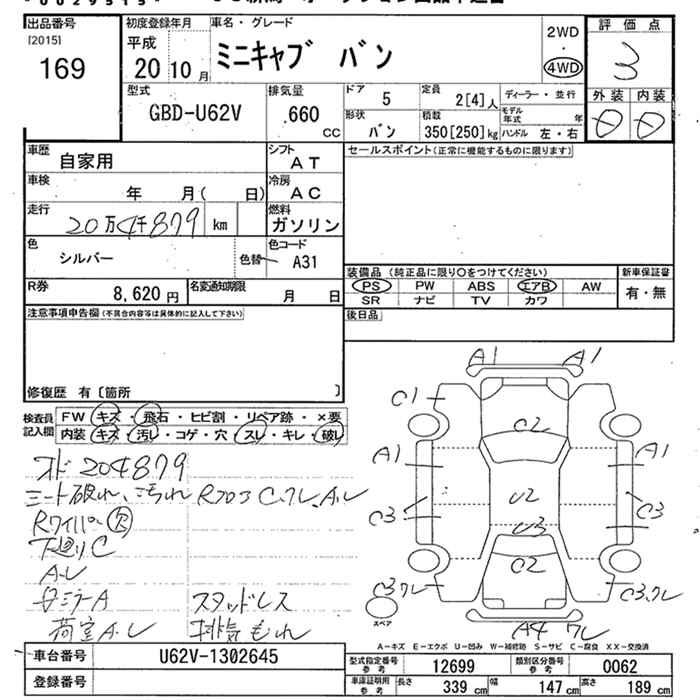 出品番号
[2015]
169
初度登録年月
平成
20 10 月
車名・グレード
ミニキャブ バン
2WD
・
4WD
評価点
3
外装 内装
型式
GBD-U62V
排気量
.660
CC
ドア
5
定員
2[4]人
ディーラー・並行
形状
バン
積数
350[250]kg
モデル年式 年
ハンドル 左・右
車歴
自家用
シフト
AT
セールスポイント(正常に機能するものに限ります)
車検
年 月( 日)
冷房
AC
走行
20万4千879 km
燃料
ガソリン
色
シルバー
色替
色コード
A31
装備品 (純正品に限り〇をつけてください)
PS PW ABS エアB AW
SR ナビ TV カワ
新車保証書
有・無
R券
8,620 円
名変通知期限
月 日
後日品
注意事項申告欄(不具合内容等は具体的に記入して下さい)
修復歴 有〔箇所 〕
検査員
記入欄
FW キズ・飛石・ヒビ割・リペア跡・×要
内装 キズ・汚し・コゲ・穴・スレ・キレ・破レ
オド 204879
シート破れ、汚れ Rフロア C.フレ.A.レ
Rワイパー欠
下廻りC
A.レ
母ミラーA スタッドレス
荷室A.レ 排気もれ
A1 A1
C1 C2
A1 A1
U2
C3 C3
U3
C2
C3.フレ C3.フレ
A4 フレ
スペア
A-キズ E-エクボ U-凹み W-補修跡 S-サビ C-腐食 XX-交換済
車台番号
U62V-1302645
登録番号
型式指定番号
参考
12699
類別区分番号
参考
0062
車庫証明用
参考
長さ 339 cm
幅 147 cm
高さ 189 cm